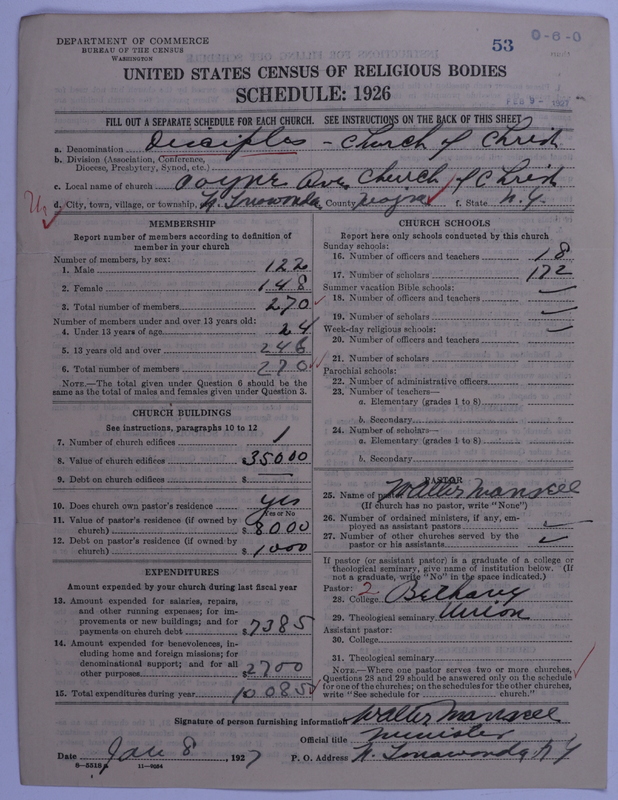 DEPARTMENT OF COMMERCE
BUREAU OF THE CENSUS
WASHINGTON
53
0-6-0
UNITED STATES CENSUS OF RELIGIOUS BODIES
SCHEDULE: 1926
FEB 9 - 1927
FILL OUT A SEPARATE SCHEDULE FOR EACH CHURCH. SEE INSTRUCTIONS ON THE BACK OF THIS SHEET
a. Denomination Disciples - Church of Christ
b. Division (Association, Conference,
Diocese, Presbytery, Synod, etc.)
c. Local name of church Payne Ave Church of Christ
d. City, town, village, or township, N. Tonawanda, County Niagra f. State N.Y.
MEMBERSHIP
Report number of members according to definition of
member in your church
Number of members, by sex:
1. Male 122
2. Female 148
3. Total number of members 270
Number of members under and over 13 years old:
4. Under 13 years of age 24
5. 13 years old and over 246
6. Total number of members 270
NOTE.—The total given under Question 6 should be
same as the total of males and females given under Question 3.
CHURCH BUILDINGS
See instructions, paragraphs 10 to 12
7. Number of church edifices 1
8. Value of church edifices $35000
9. Debt on church edifices $ —
10. Does church own pastor's residence yes
Yes or No
11. Value of pastor's residence (if owned by
church) $8000
12. Debt on pastor's residence (if owned by
church) $1000
EXPENDITURES
Amount expended by your church during last fiscal year
13. Amount expended for salaries, repairs,
and other running expenses; for im-
provements or new buildings; and for
payments on church debt $7385
14. Amount expended for benevolences, in-
cluding home and foreign missions; for
denominational support; and for all
other purposes $2700
15. Total expenditures during year 10085
CHURCH SCHOOLS
Report here only schools conducted by this church
Sunday schools:
16. Number of officers and teachers 18
17. Number of scholars 172
Summer vacation Bible schools:
18. Number of officers and teachers —
19. Number of scholars —
Week-day religious schools:
20. Number of officers and teachers —
21. Number of scholars
Parochial schools:
22. Number of administrative officers
23. Number of teachers—
a. Elementary (grades 1 to 8)
b. Secondary
24. Number of scholars—
a. Elementary (grades 1 to 8)
b. Secondary
PASTOR
25. Name of pastor Walter Mansell
(If church has no pastor, write "None")
26. Number of ordained ministers, if any, em-
ployed as assistant pastors —
27. Number of other churches served by the
pastor or his assistants —
If pastor (or assistant pastor) is a graduate of a college or
theological seminary, give name of institution below. (If
not a graduate, write "No" in the space indicated.)
Pastor: 2
28. College Bethany
29. Theological seminary Union
Assistant pastor:
30. College
31. Theological seminary
NOTE.—Where one pastor serves two or more churches,
Questions 28 and 29 should be answered only on the schedule
for one of the churches; on the schedules for the other churches,
write "See schedule for church."
Signature of person furnishing information Walter Mansell
Official title Minister
Date Jan 8, 1927 P. O. Address N. Tonawanda, N Y
8-5318a 11-9034